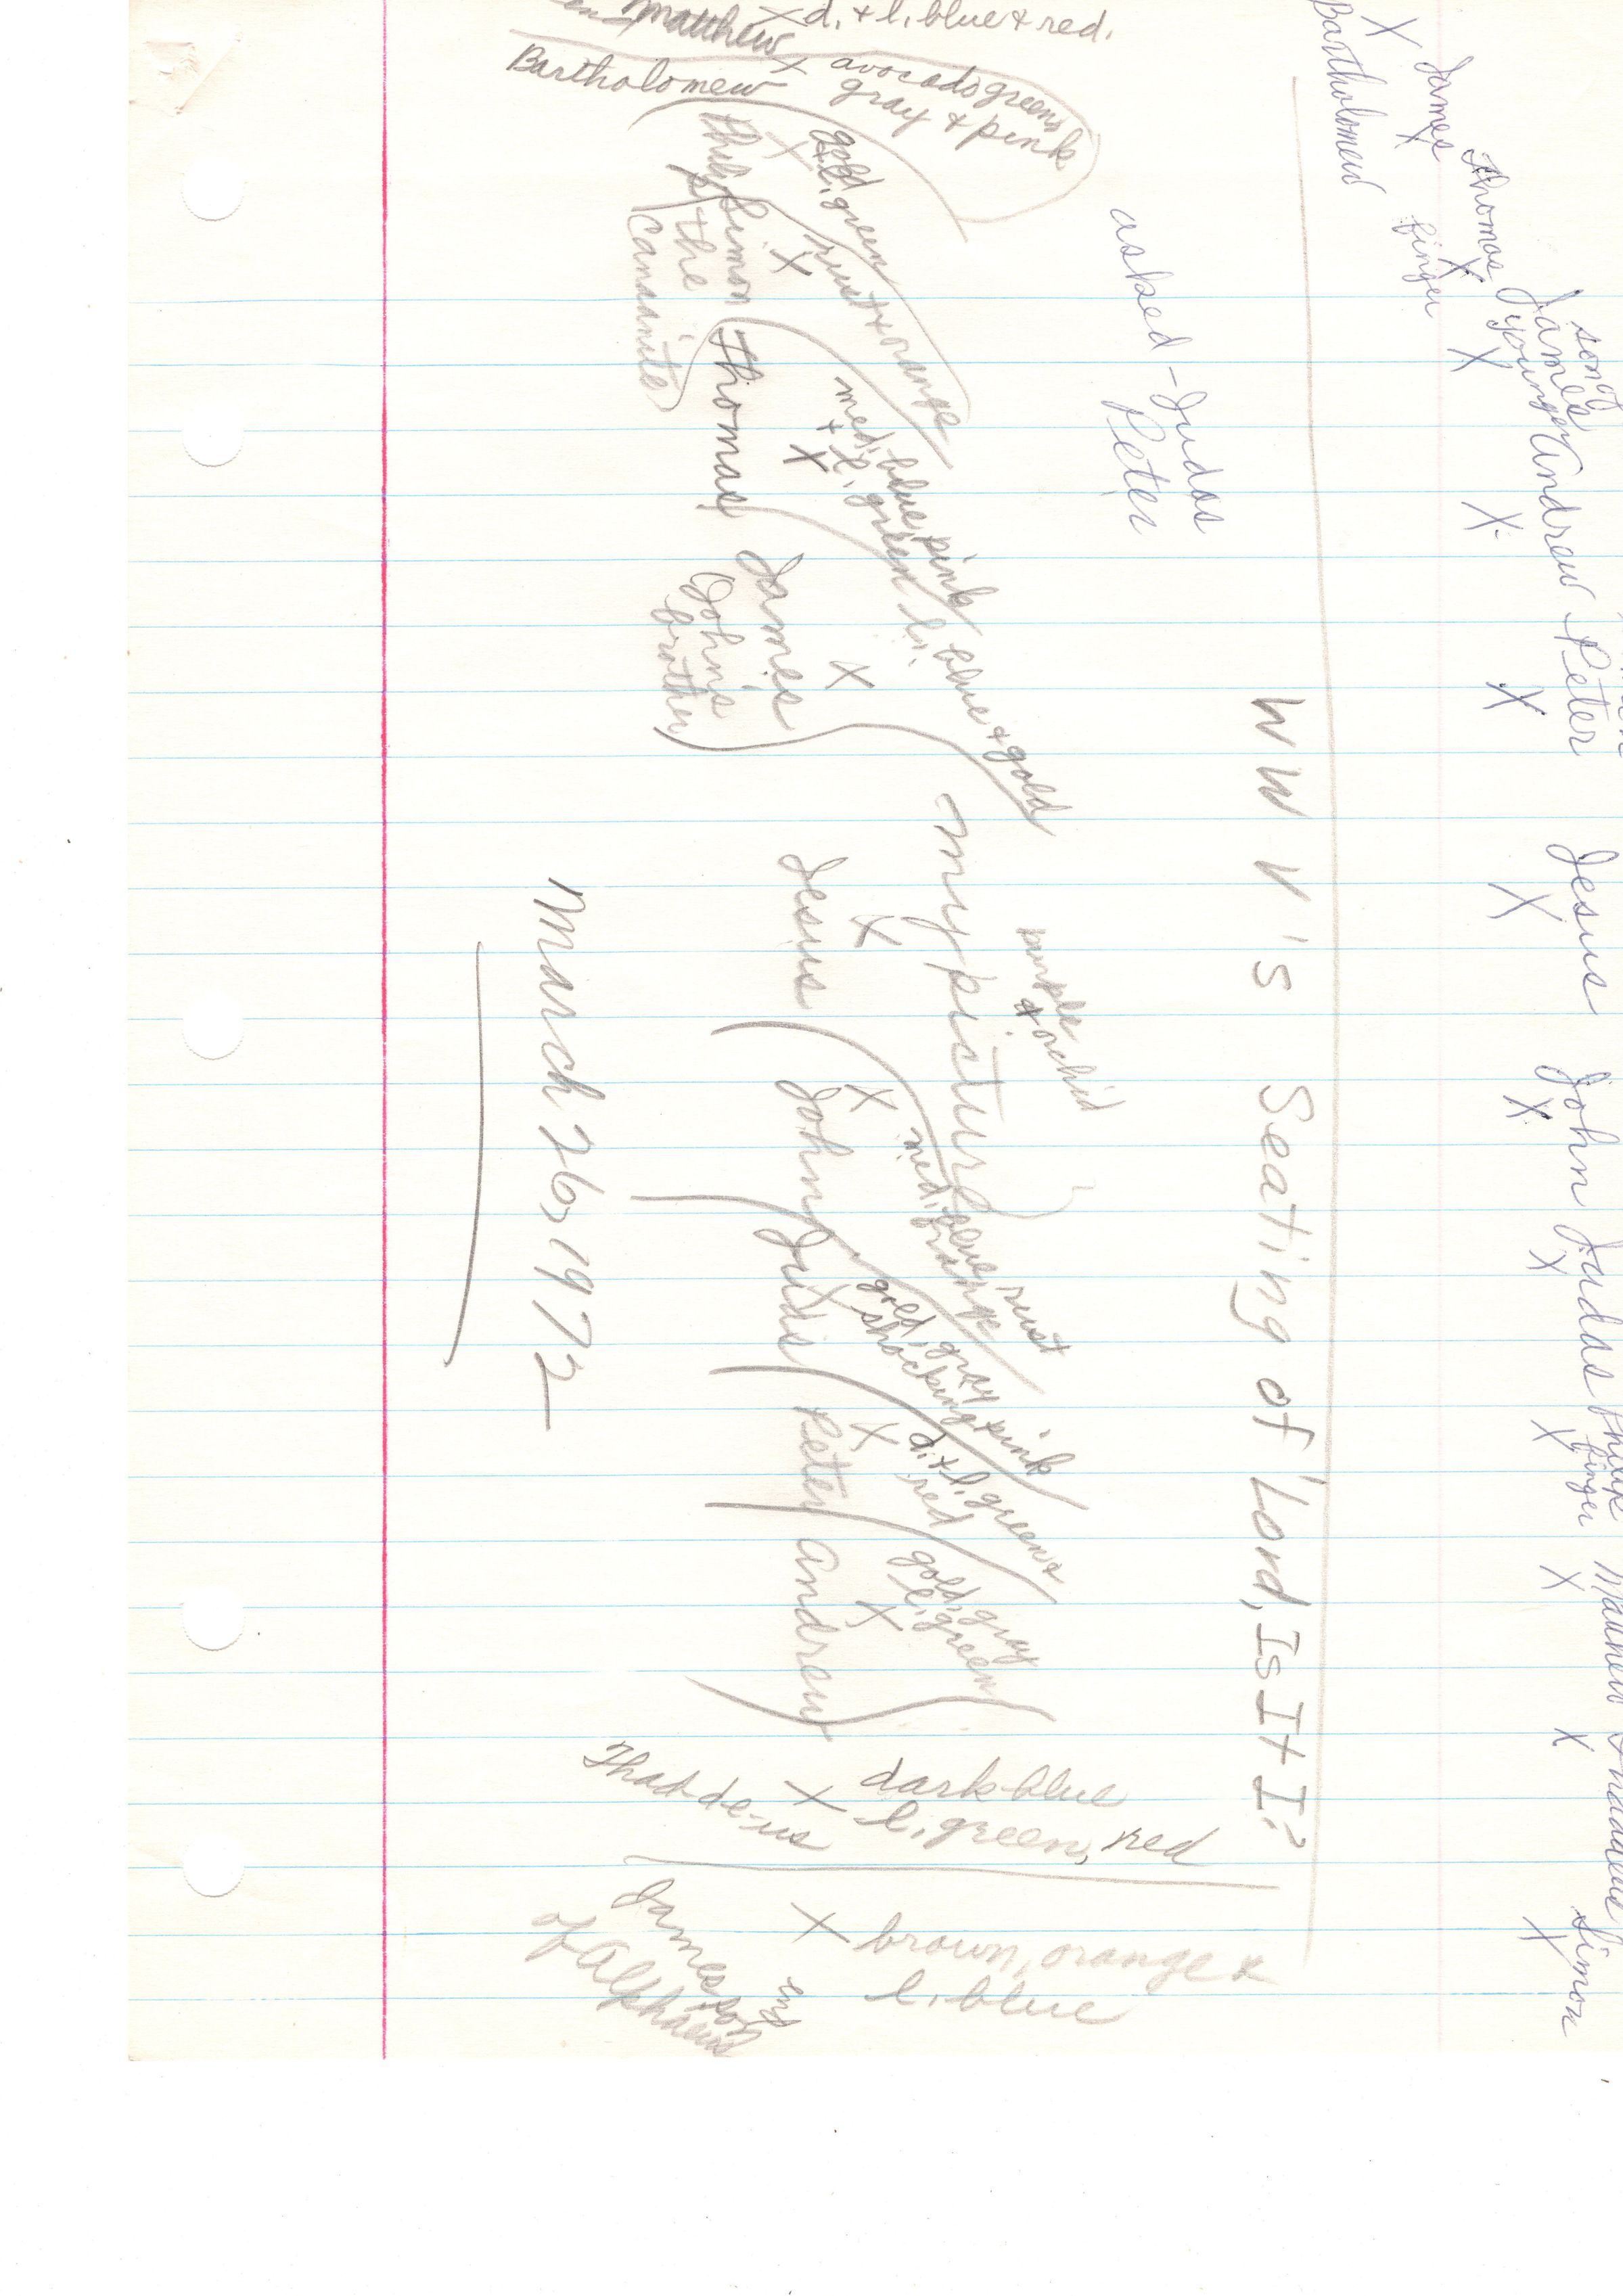 son of
James
younger
X
Andrew
X
Peter
X
Jesus
X
John
X
Judas
X
Philip
finger
X
Matthew
X
Thaddeus
X
Simon
X
Thomas
X
James
X
finger
X
Bartholomew
WWV's Seating of "Lord, Is It I?"
asked - Judas
Peter
my picture
end Matthew X d. + l. blue + red.
Bartholomew X avocado green,
gray + pink
gold
+ l. green
X
Philip
rust + orange
X
Simon
the
Canaanite
med. blue, pink
+ l. green
X
Thomas
l. blue + gold
X
James
(John's
brother)
purple
+ orchid
X
Jesus
med. blue, rust
orange
X
John
gold, gray
shocking pink
X
Judas
d. + l. green +
red
X
Peter
gold, gray
l. green
X
Andrew
dark blue
X l. green, red
Thad-de-us
X brown, orange &
l. blue
end
James, son
of Alphaeus
March 26, 1972